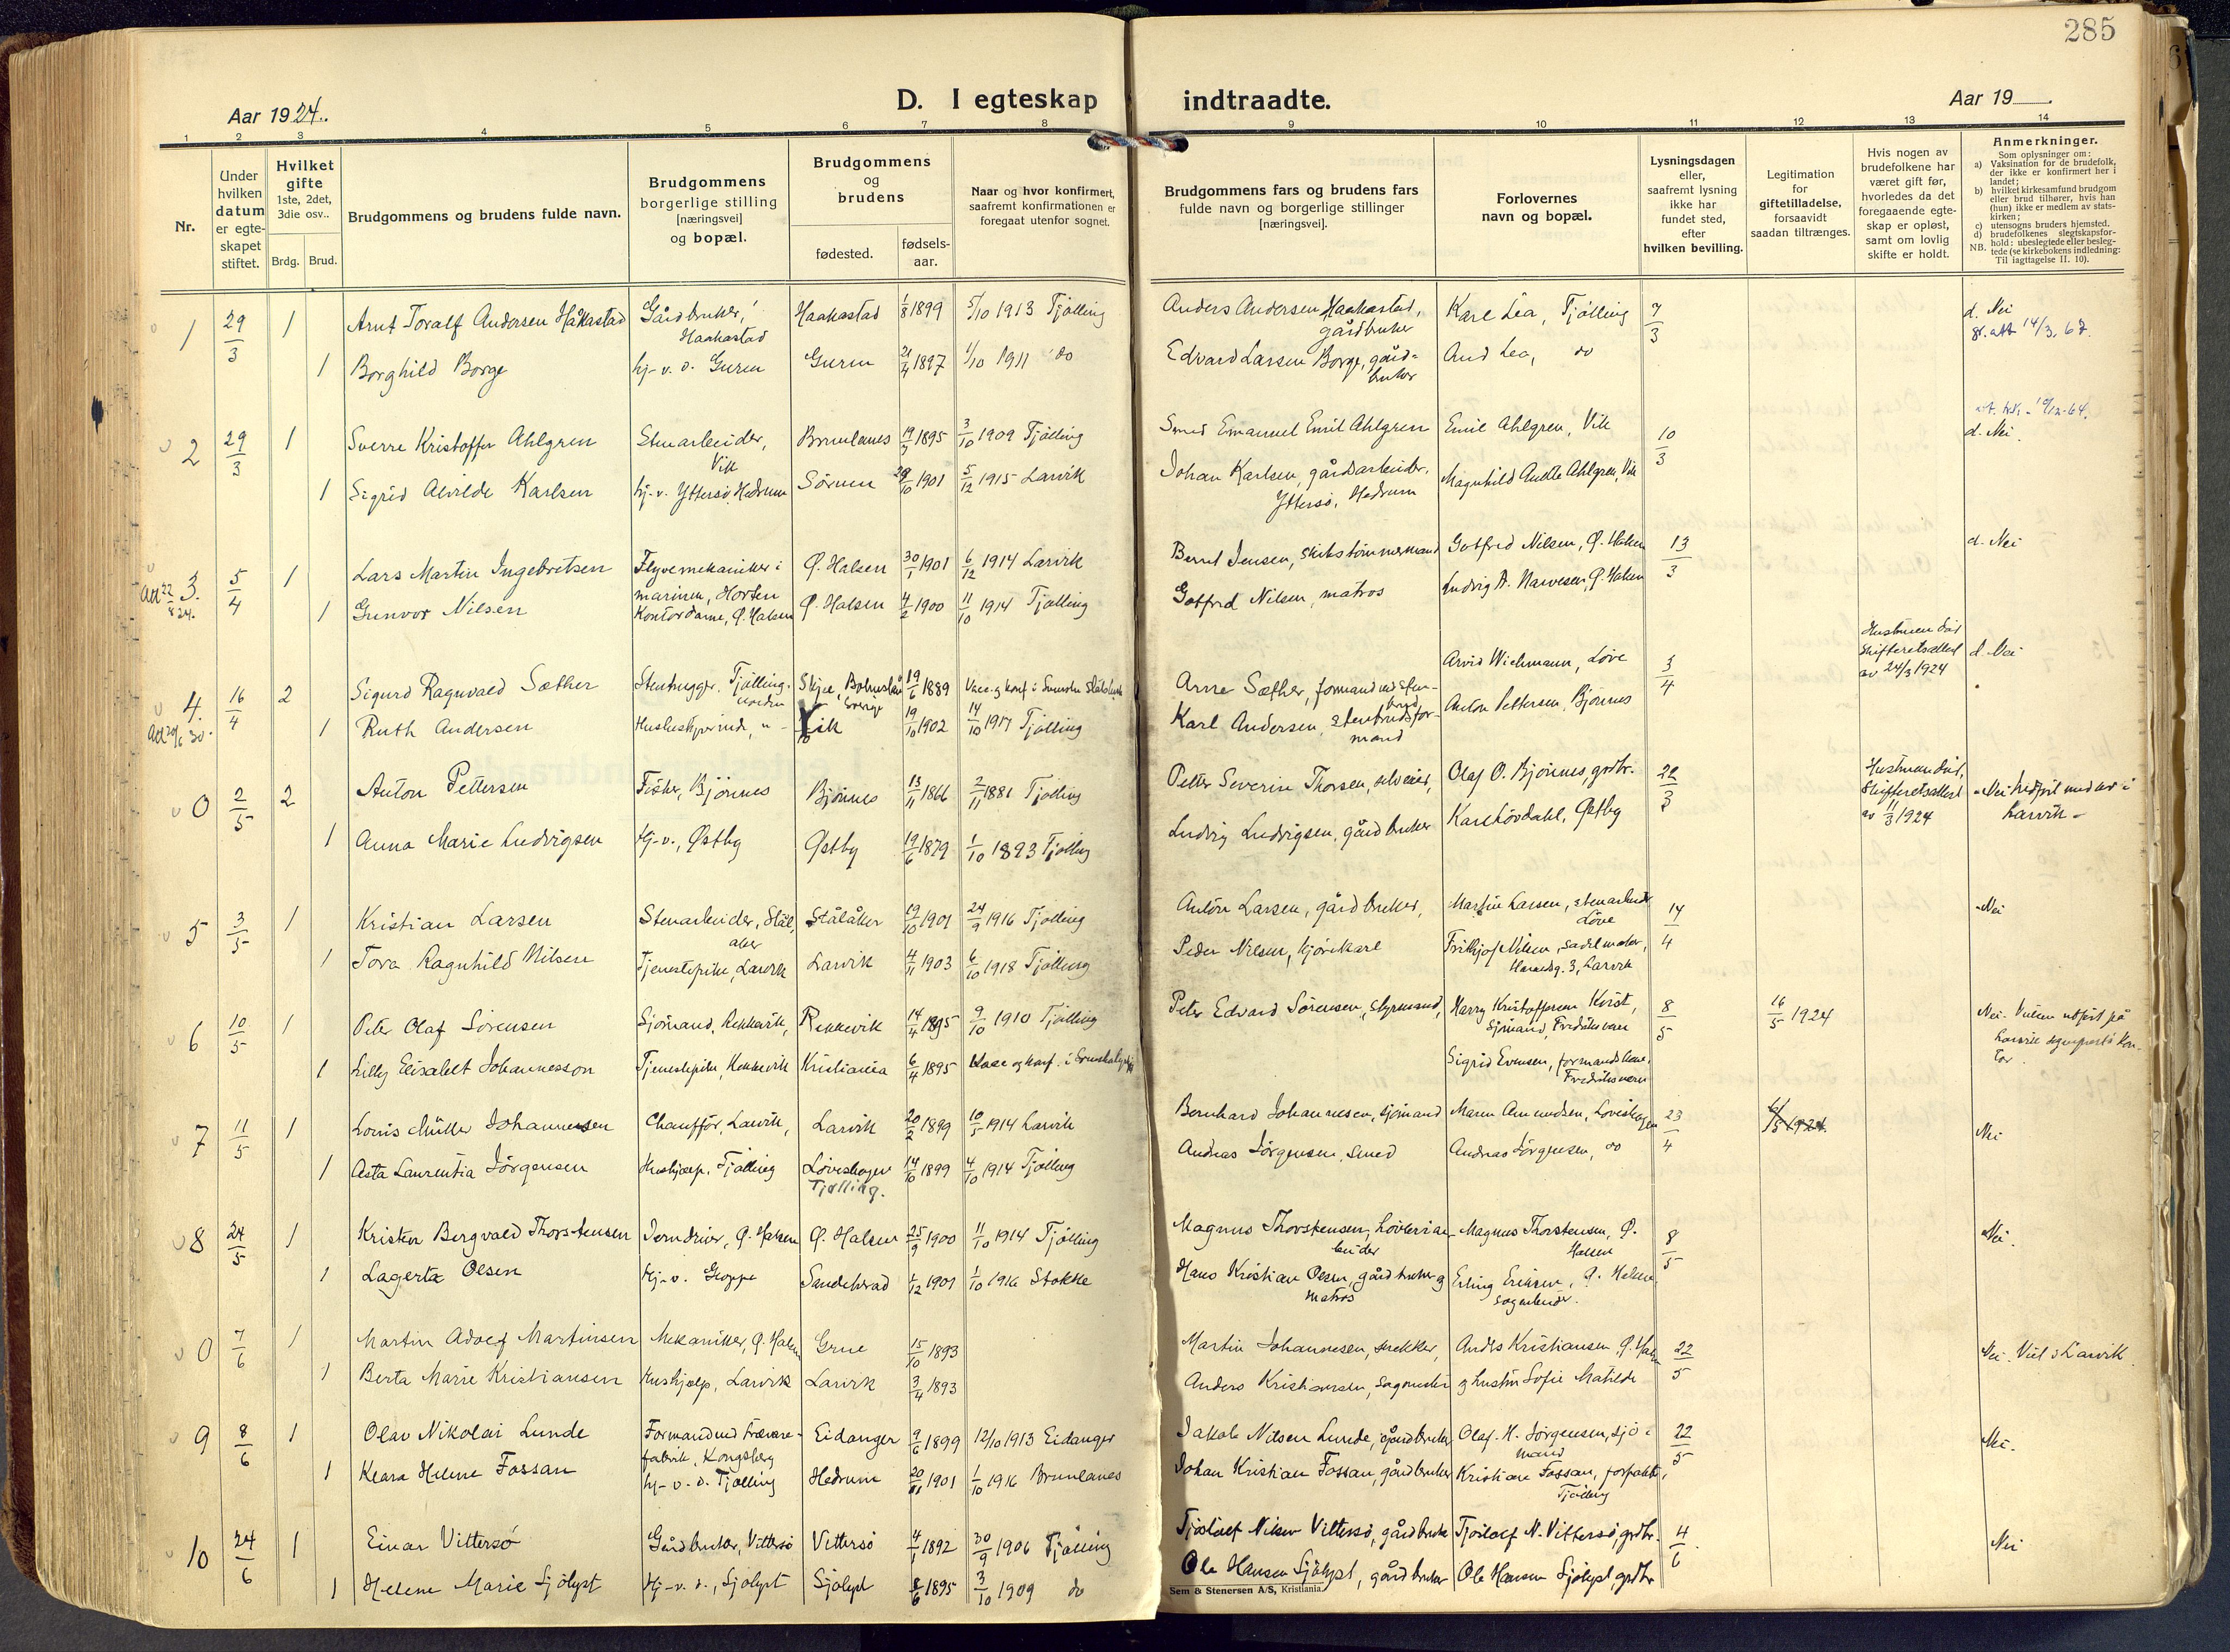 285
Aar 1924.
D. I egteskap
indtraadte.
Aar 19
1 2 3 4 5 6 7 8 9 10 11 12 13 14
Nr.
Under hvilken datum er egteskapet stiftet.
Hvilket gifte 1ste, 2det, 3die osv..
Brdg. Brud.
Brudgommens og brudens fulde navn.
Brudgommens borgerlige stilling [næringsvei] og bopæl.
Brudgommens og brudens
fødested.
fødsels-aar.
Naar og hvor konfirmert, saafremt konfirmationen er foregaat utenfor sognet.
Brudgommens fars og brudens fars fulde navn og borgerlige stillinger [næringsvei].
Forlovernes navn og bopæl.
Lysningsdagen eller, saafremt lysning ikke har fundet sted, efter hvilken bevilling.
Legitimation for giftetilladelse, forsaavidt saadan tiltrænges.
Hvis nogen av brudefolkene har været gift før, hvorledes da det foregaaende egteskap er opløst, samt om lovlig skifte er holdt.
Anmerkninger.
Som oplysninger om:
a) Vaksination for de brudefolk, der ikke er konfirmert her i landet;
b) hvilket kirkesamfund brudgom eller brud tilhører, hvis han (hun) ikke er medlem av statskirken;
c) utensogns bruders hjemsted.
d) brudefolkenes slegtskapsforhold: ubeslegtede eller beslegtede (se kirkebokens indledning:
NB. Til iagttagelse II. 10).
1 29/3 1 Arnt Toralf Andersen Håkastad Gårdbruker, Haakastad Haakastad 1/8 1899 5/10 1913 Tjølling Anders Andersen Haakastad, gårdbruker Karl Lea, Tjølling 7/3 d. Nei
14/3. 67.
1 Borghild Borge hj-v. o. Guren Guren 21/4 1897 1/10 1911 do Edvard Larsen Borge, gårdbruker Aud Lea, do
2 29/3 1 Sverre Kristoffer Ahlgren Stenarbeider, Vik Brunlanes 19/3 1895 3/10 1909 Tjølling Smed Emanuel Emil Ahlgren Emil Ahlgren, Vik 10/3 d. Nei.
10/12-64.
1 Sigrid Alvilde Karlsen hj-v. Yttersö, Hedrum Sørum 29/10 1901 5/12 1915 Larvik Johan Karlsen, gårdsarbeider, Yttersö, Hedrum Magnhild Ahlgren, Vik
3. 5/4 1 Lars Martin Ingebretsen Flyvemekaniker i marinen, Horten Ø. Halsen 30/1 1901 6/12 1914 Larvik Bernt Jensen, skibstømmermand Gotfred Nilsen, Ø. Halsen 13/3 d. Nei
Att 22/8 24.
1 Gunvor Nilsen Kontordame, Ø. Halsen Ø. Halsen 4/2 1900 11/10 1914 Tjølling Gotfred Nilsen, matros Ludvig A. Narvesen, Ø. Halsen
4. 16/4 2 Sigurd Ragnvald Sæther Stenhugger, Tjølling Skjee, Bohuslän Sverige 19/6 1889 Vacc. og konf. i Svenska Arne Sæther, formand ved stenbrud Arvid Wichmann, Løve 3/4 Hustruen død skifteretsattest av 24/3 1924 d. Nei
Att 20/6 30.
1 Ruth Andersen Husbestyrerinde, " - Vik 19/10 1902 14/10 1917 Tjølling Karl Andersen, stenbrudsformand Anton Pettersen, Bjønnes
0 2/5 2 Anton Pettersen Fisker, Bjønnes Bjønnes 13/11 1866 2/11 1881 Tjølling Petter Severin Thorsen, selveier, Olaf O. Bjønnes grdbr. 22/3 Hustruen død, skifteretsattest av 11/3 1924 Nei. i Larvik -
1 Anna Marie Ludvigsen Hj-v., Østby Østby 19/6 1879 1/10 1893 Tjølling Ludvig Ludvigsen, gårdbruker Karl Hövdahl, Østby
5 3/5 1 Kristian Larsen Stenarbeider, Stålaker Stålåker 19/10 1901 24/9 1916 Tjølling Anton Larsen, gårdbruker, Martin Larsen, stenarbeider Løve 14/4 Nei
1 Tora Ragnhild Nilsen Tjenestepike, Larvik Larvik 4/11 1903 6/10 1918 Tjølling Peder Nilsen, kjørekarl Frithjof Nilsen, sadelmaker, 3, Larvik
6 10/5 1 Peter Olaf Sörensen Sjömand, Rekkevik, Rekkevik 14/4 1895 9/10 1910 Tjølling Peter Edvard Sörensen, styrmand, Harry Kristoffersen Kvist, Sjömand, Fredriksvern 8/5 16/5 1924 Nei. Vielsen utført på Larvik sogneprests kontor.
1 Lilly Elisabet Johannesson Tjenestepike, Rekkevik Kristiania 6/4 1895 Vacc og konf. i Sigrid Evensen, Fredriksvern
7 11/5 1 Louis Müller Johannesen Chaufför, Larvik, Larvik 20/2 1899 10/5 1914 Larvik Bernhard Johannesen, sjömand Maren Amundsen, Løveskogen 23/4 Nei
1 Asta Laurentia Jörgensen Hushjælp, Tjølling Løveskogen Tjølling. 14/10 1899 4/10 1914 Tjølling Andreas Jörgensen, Smed Andreas Jörgensen, do
8 24/5 1 Kristen Bergvald Thorstensen Jerndreier, Ø. Halsen Ø. Halsen 25/9 1900 11/10 1914 Tjølling Magnus Thorstensen, høvleriarbeider Magnus Thorstensen, Ø. Halsen 8/5 Nei.
1 Lagerta Olsen Hj-v. Groppe Sandeherad 1/12 1901 1/10 1916 Stokke Hans Kristian Olsen, gårdbruker og matros Erling Eriksen, Ø. Halsen
0 7/6 1 Martin Adolf Martinsen Mekaniker, Ø. Halsen Grue 15/10 1893 Martin Johannesen, Anders Kristiansen Ø. Halsen 22/5 Nei. Viet i Larvik.
1 Berta Marie Kristiansen Hushjælp, Larvik Larvik 3/4 1893 Anders Kristiansen, og hustru Sofie Matilde
9 8/6 1 Olav Nikolai Lunde Formand ved trævarefabrik, Kongsberg Eidanger 9/6 1899 12/10 1913 Eidanger Jakob Nilsen Lunde, gårdbruker Olaf. H. Jörgensen, sjömand 22/5 Nei.
1 Klara Helene Fossan hj-v. o. Tjølling Hedrum 20/11 1901 1/10 1916 Brunlanes Johan Kristian Fossan, gårdbruker Kristian Fossan, forpakter, Tjølling
10 24/6 1 Einar Vittersö Gårdbruker, Vittersö Vittersö 4/1 1892 30/9 1906 Tjølling Tjöolf Nilsen Vittersö, gårdbruker Tjöolf N. Vittersö, grdbr. 4/6 Nei
1 Helene Marie Sjölyst Hj-v. o., Sjölyst Sjölyst 8/6 1895 3/10 1909 do Ole Hansen Sjölyst, gårdbruker Ole Hansen Sjölyst, grdbr
Sem & Stenersen A/S, Kristiania.